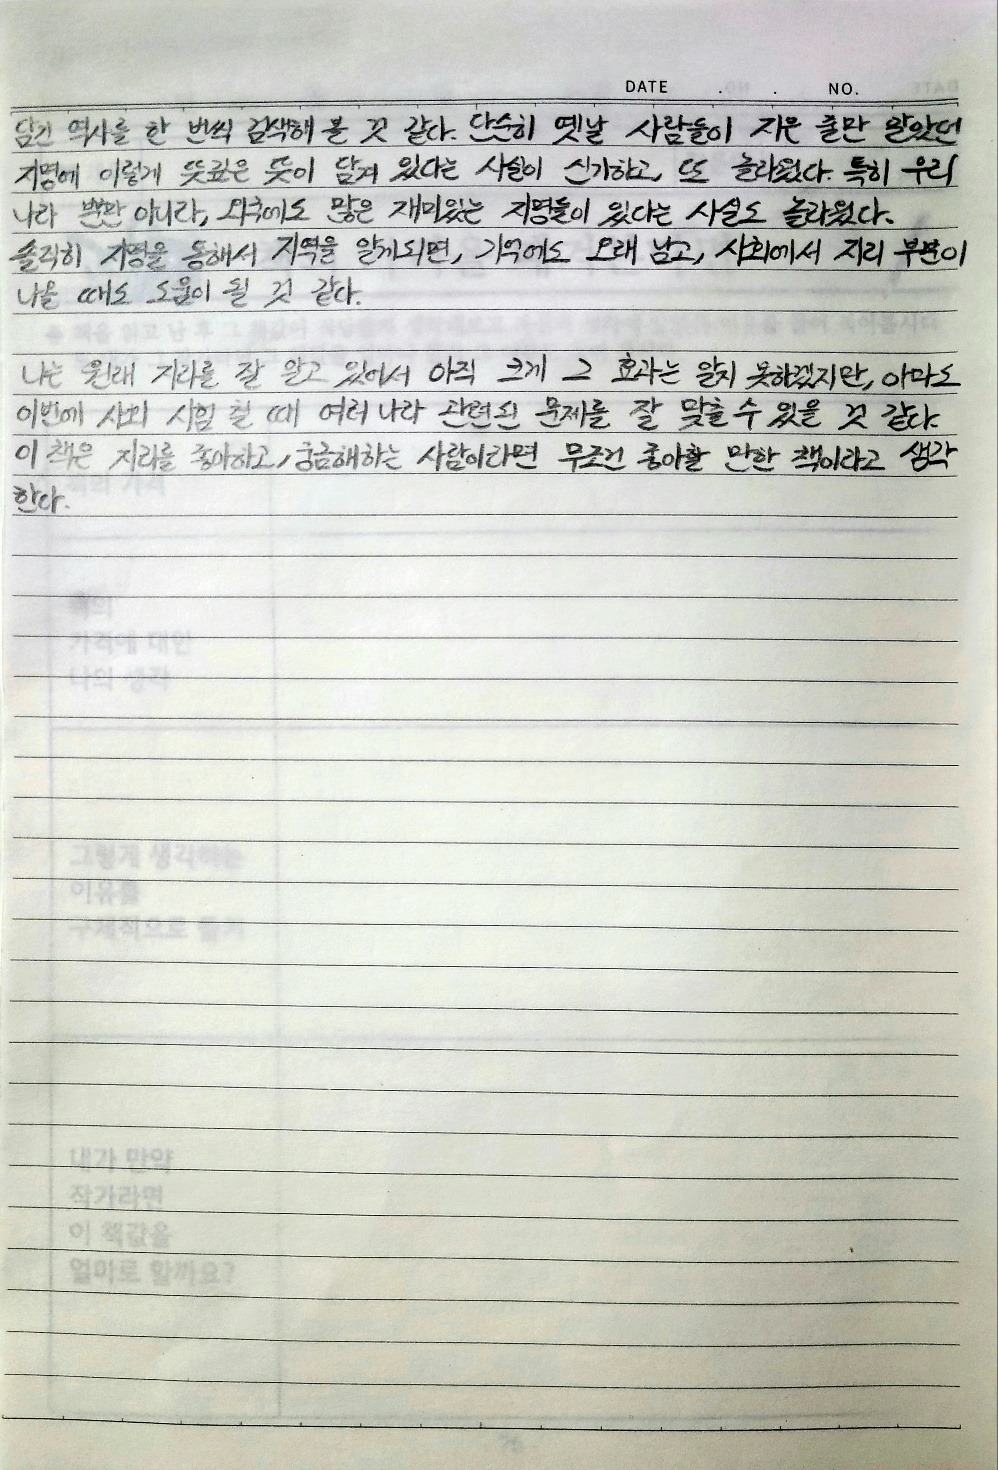 DATE . . NO.
담긴 역사를 한 번씩 검색해 본 것 같다. 단순히 옛날 사람들이 지은 줄만 알았던
지명에 이렇게 뜻깊은 뜻이 담겨 있다는 사실이 신기하고, 또 놀라웠다. 특히 우리
나라 뿐만 아니라, 외국에도 많은 재미있는 지명들이 있다는 사실도 놀라웠다.
솔직히 지명을 통해서 지역을 알게되면, 기억에도 오래 남고, 사회에서 지리 부분이
나올 때도 도움이 될 것 같다.
나는 원래 지리를 잘 알고 있어서 아직 크게 그 효과는 알지 못하겠지만, 아마도
이번에 사회 시험 칠 때 여러 나라 관련된 문제를 잘 맞출 수 있을 것 같다.
이 책은 지리를 좋아하고, 궁금해하는 사람이라면 무조건 좋아할 만한 책이라고 생각
한다.
책의
가격에 대한
나의 생각
그렇게 생각하는
이유를
구체적으로 들기
내가 만약
작가라면
이 책값을
얼마로 할까요?